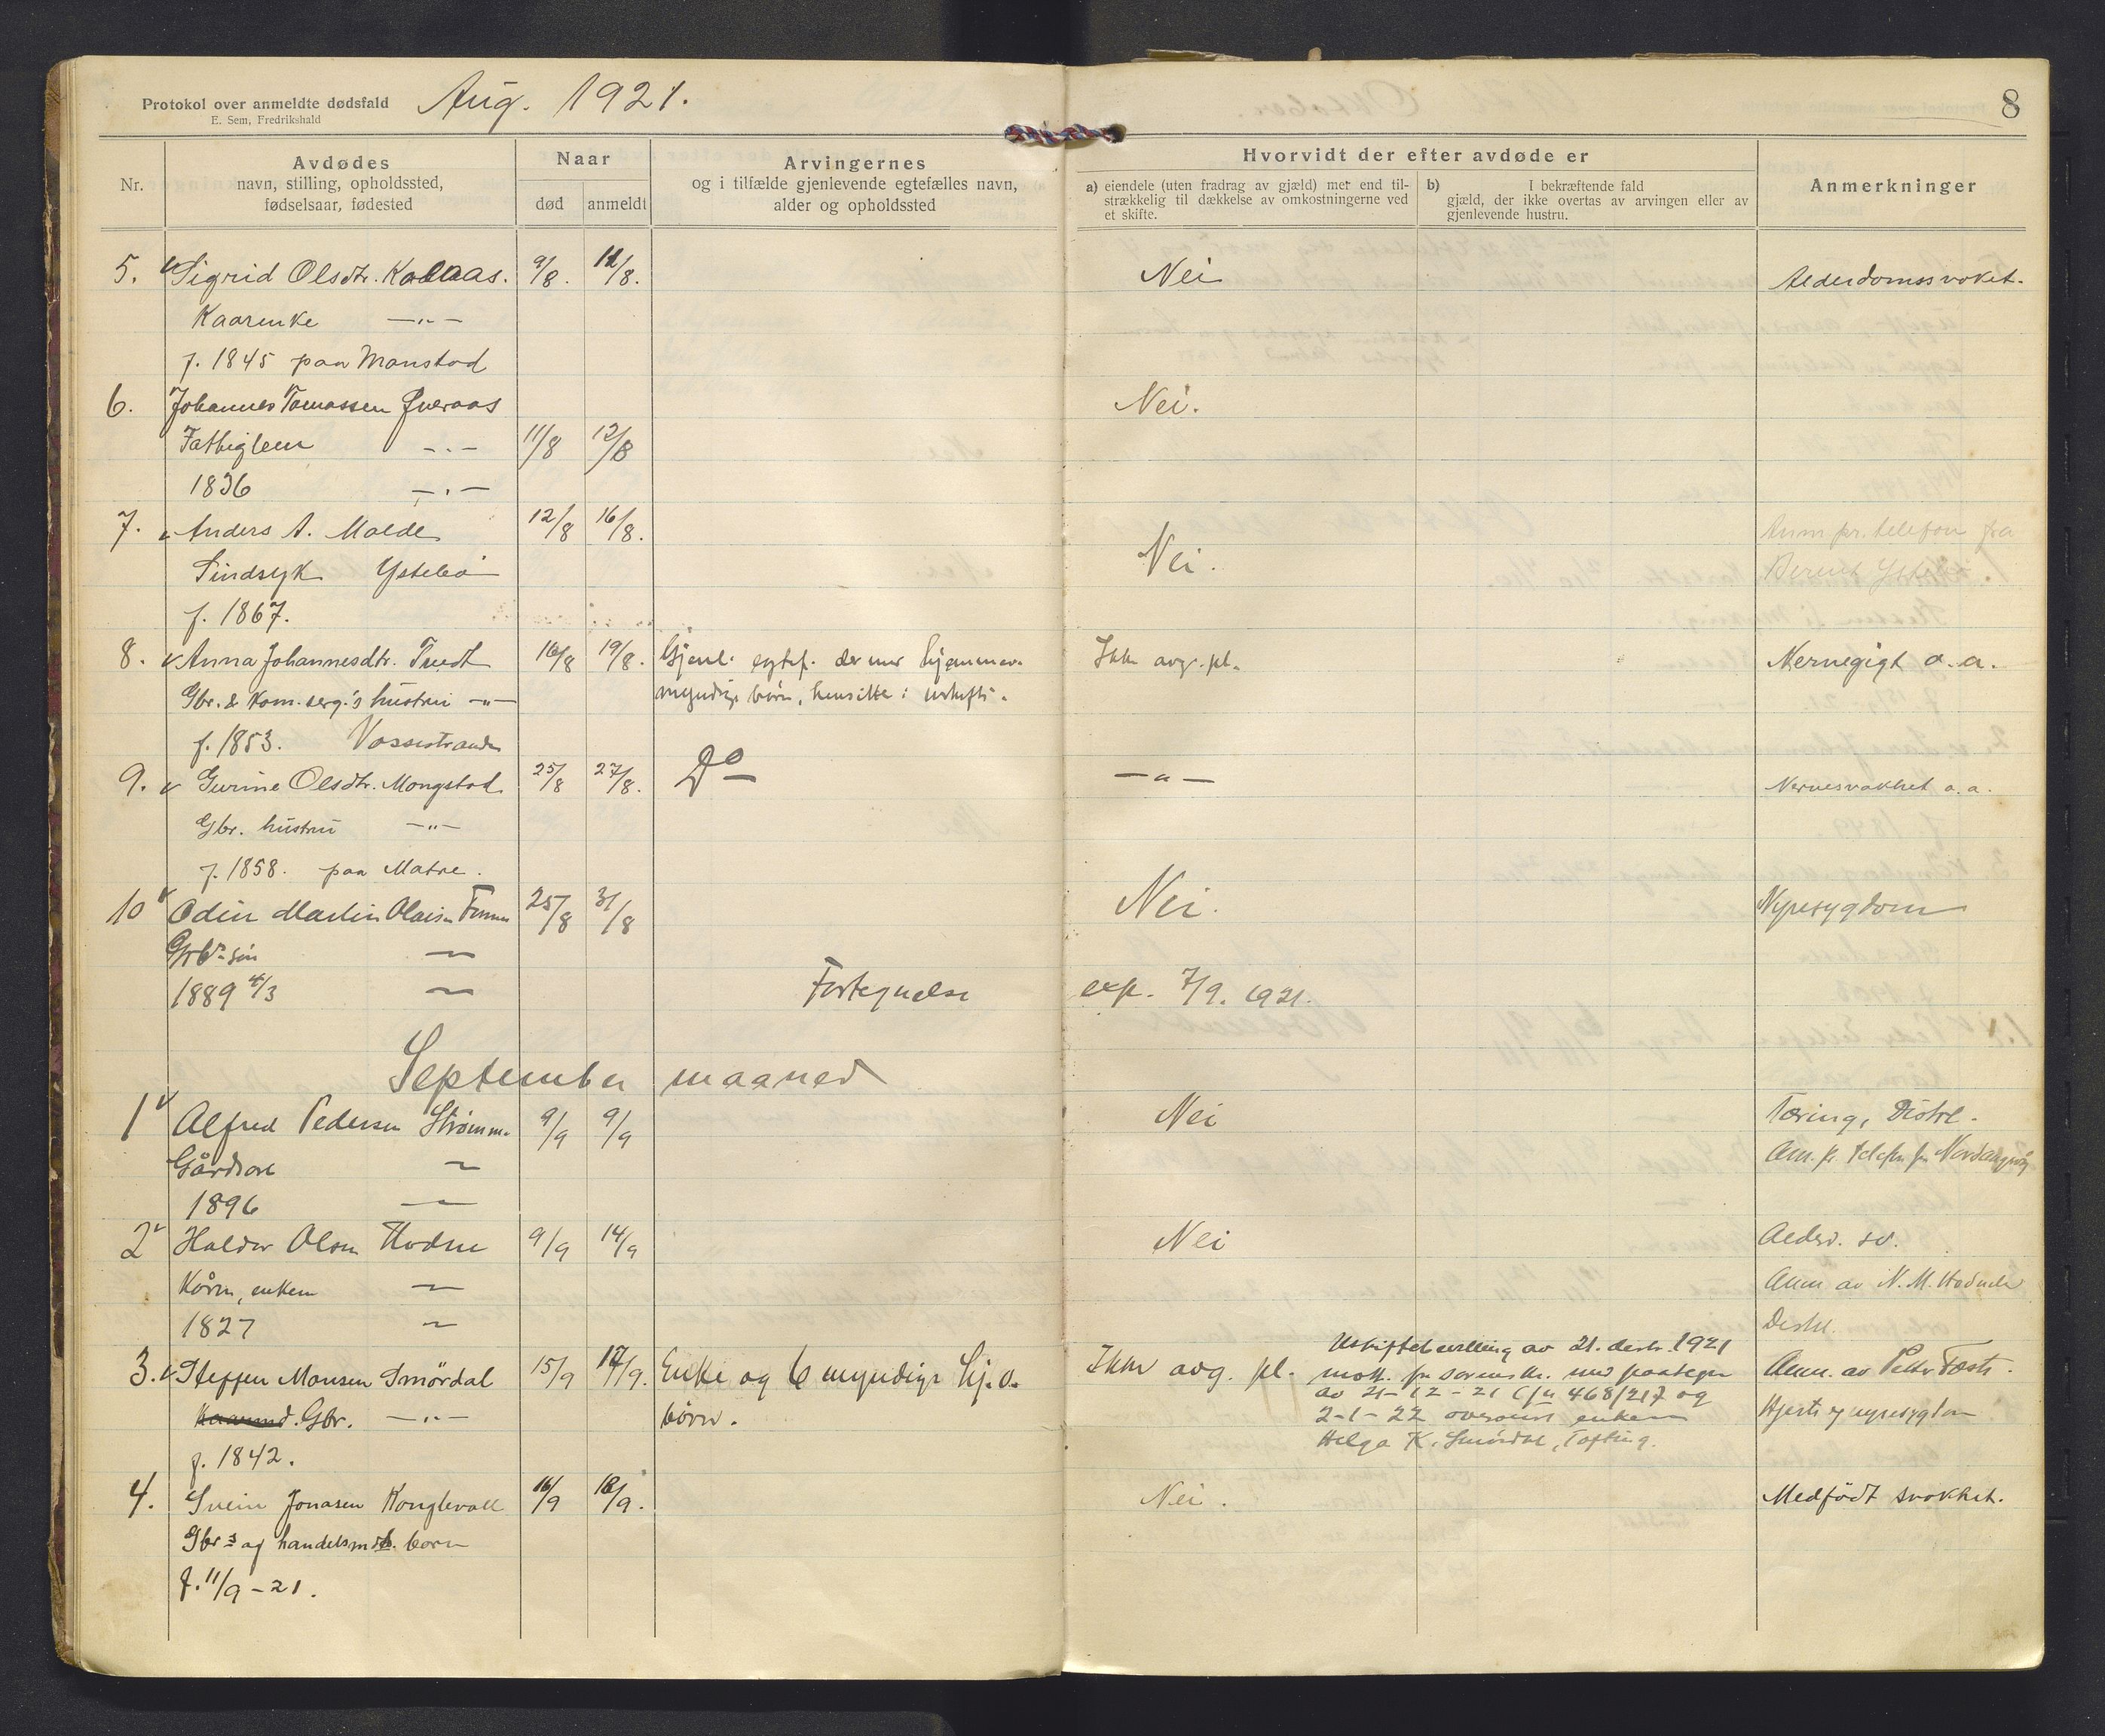 Protokol over anmeldte dødsfald
E. Sem, Fredrikshald
Aug. 1921.
8
Nr.
Avdødes
navn, stilling, opholdssted,
fødselsaar, fødested
Naar
død
anmeldt
Arvingernes
og i tilfælde gjenlevende egtefælles navn,
alder og opholdssted
Hvorvidt der efter avdøde er
a) eiendele (uten fradrag av gjæld) mer end til-
strækkelig til dækkelse av omkostningerne ved
et skifte.
b) I bekræftende fald
gjæld, der ikke overtas av arvingen eller av
gjenlevende hustru.
Anmerkninger
5. Sigrid Olsdtr. Kolaas. 9/8. 11/8. Nei Alderdomssvaket.
Kaarenke —"—
f. 1845 paa Monstad
6. Johannes Tomassen Kveraas Nei.
Fattiglem —"— 11/8 12/8
1836 —"—
7. Anders A. Molde 12/8 16/8. Nei. Anm pr. telefon fra
Sindsyk Ystebö Berent Ystebö
f. 1867.
8. Anna Johannesdtr. Tvedt 16/8 19/8. Gjenl. egtef. der med hjemmev. Ikke avg.pl. Nervegigt o.a.
Gbr. & Kom.berg.'s hustru —"— myndige börn, hensitter i uskifte.
f. 1853. Vossestranden
9. Gurine Olsdtr. Mongstad 25/8 27/8. Do —"— Nervesvakhet o.a.
Gbr. hustru —"—
f. 1858. paa Matre.
10 Odin Martin Olaisen 25/8 31/8 Nei. Nyresygdom
Grbr sön —
1889 4/3 —
Fortegnelse exp. 7/9. 1921.
September maaned
1 Alfred Pedersen Strömm. 9/9 9/9 Nei Tæring, Distrl.
Gårdsarb —
1896 —
2 Haldor Olsen Hodne 9/9 14/9 Nei Alderd. sv.
Kårm, enkem — Anm av N. M. Hodne
1827 — Distrl.
3. Steffen Monsen Smördal 15/9 17/9. Enke og 6 myndige hj.v. Ikke avg. pl. Anm. av Petter
Gbr. —"— börn. Hjerte og nyresygdom
f. 1842.
Uskiftebevilling av 21. decbr. 1921
mott. fra sorenskr. med paategn
av 21-12-21 (jn 468/217 og
2-1-22 oversendt enken
Helga K. Smördal,
4. Svein Jonasen Konglevoll 16/9 18/9. Nei. Medfödt svakhet.
Gbr s og handelsmds. barn
f. 11/9-21.